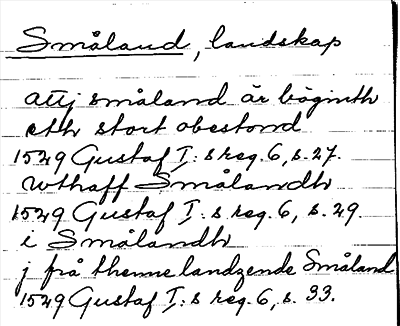 Småland, landskap
attj småland är böginth
eth stort obestond
1529 Gustaf I:s reg. 6, s. 27.
wthaff Smålandh
1529 Gustaf I:s reg. 6, s. 29.
i Smålandh
j frå thenne landzende Småland
1529 Gustaf I:s reg. 6, s. 33.